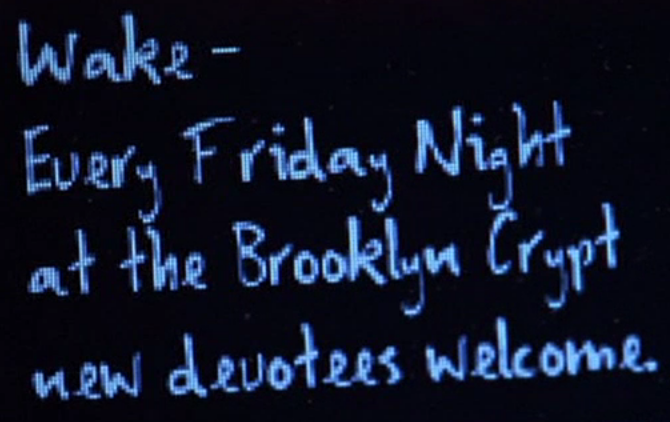 Wake-
Every Friday Night
at the Brooklyn Crypt
new devotees welcome.